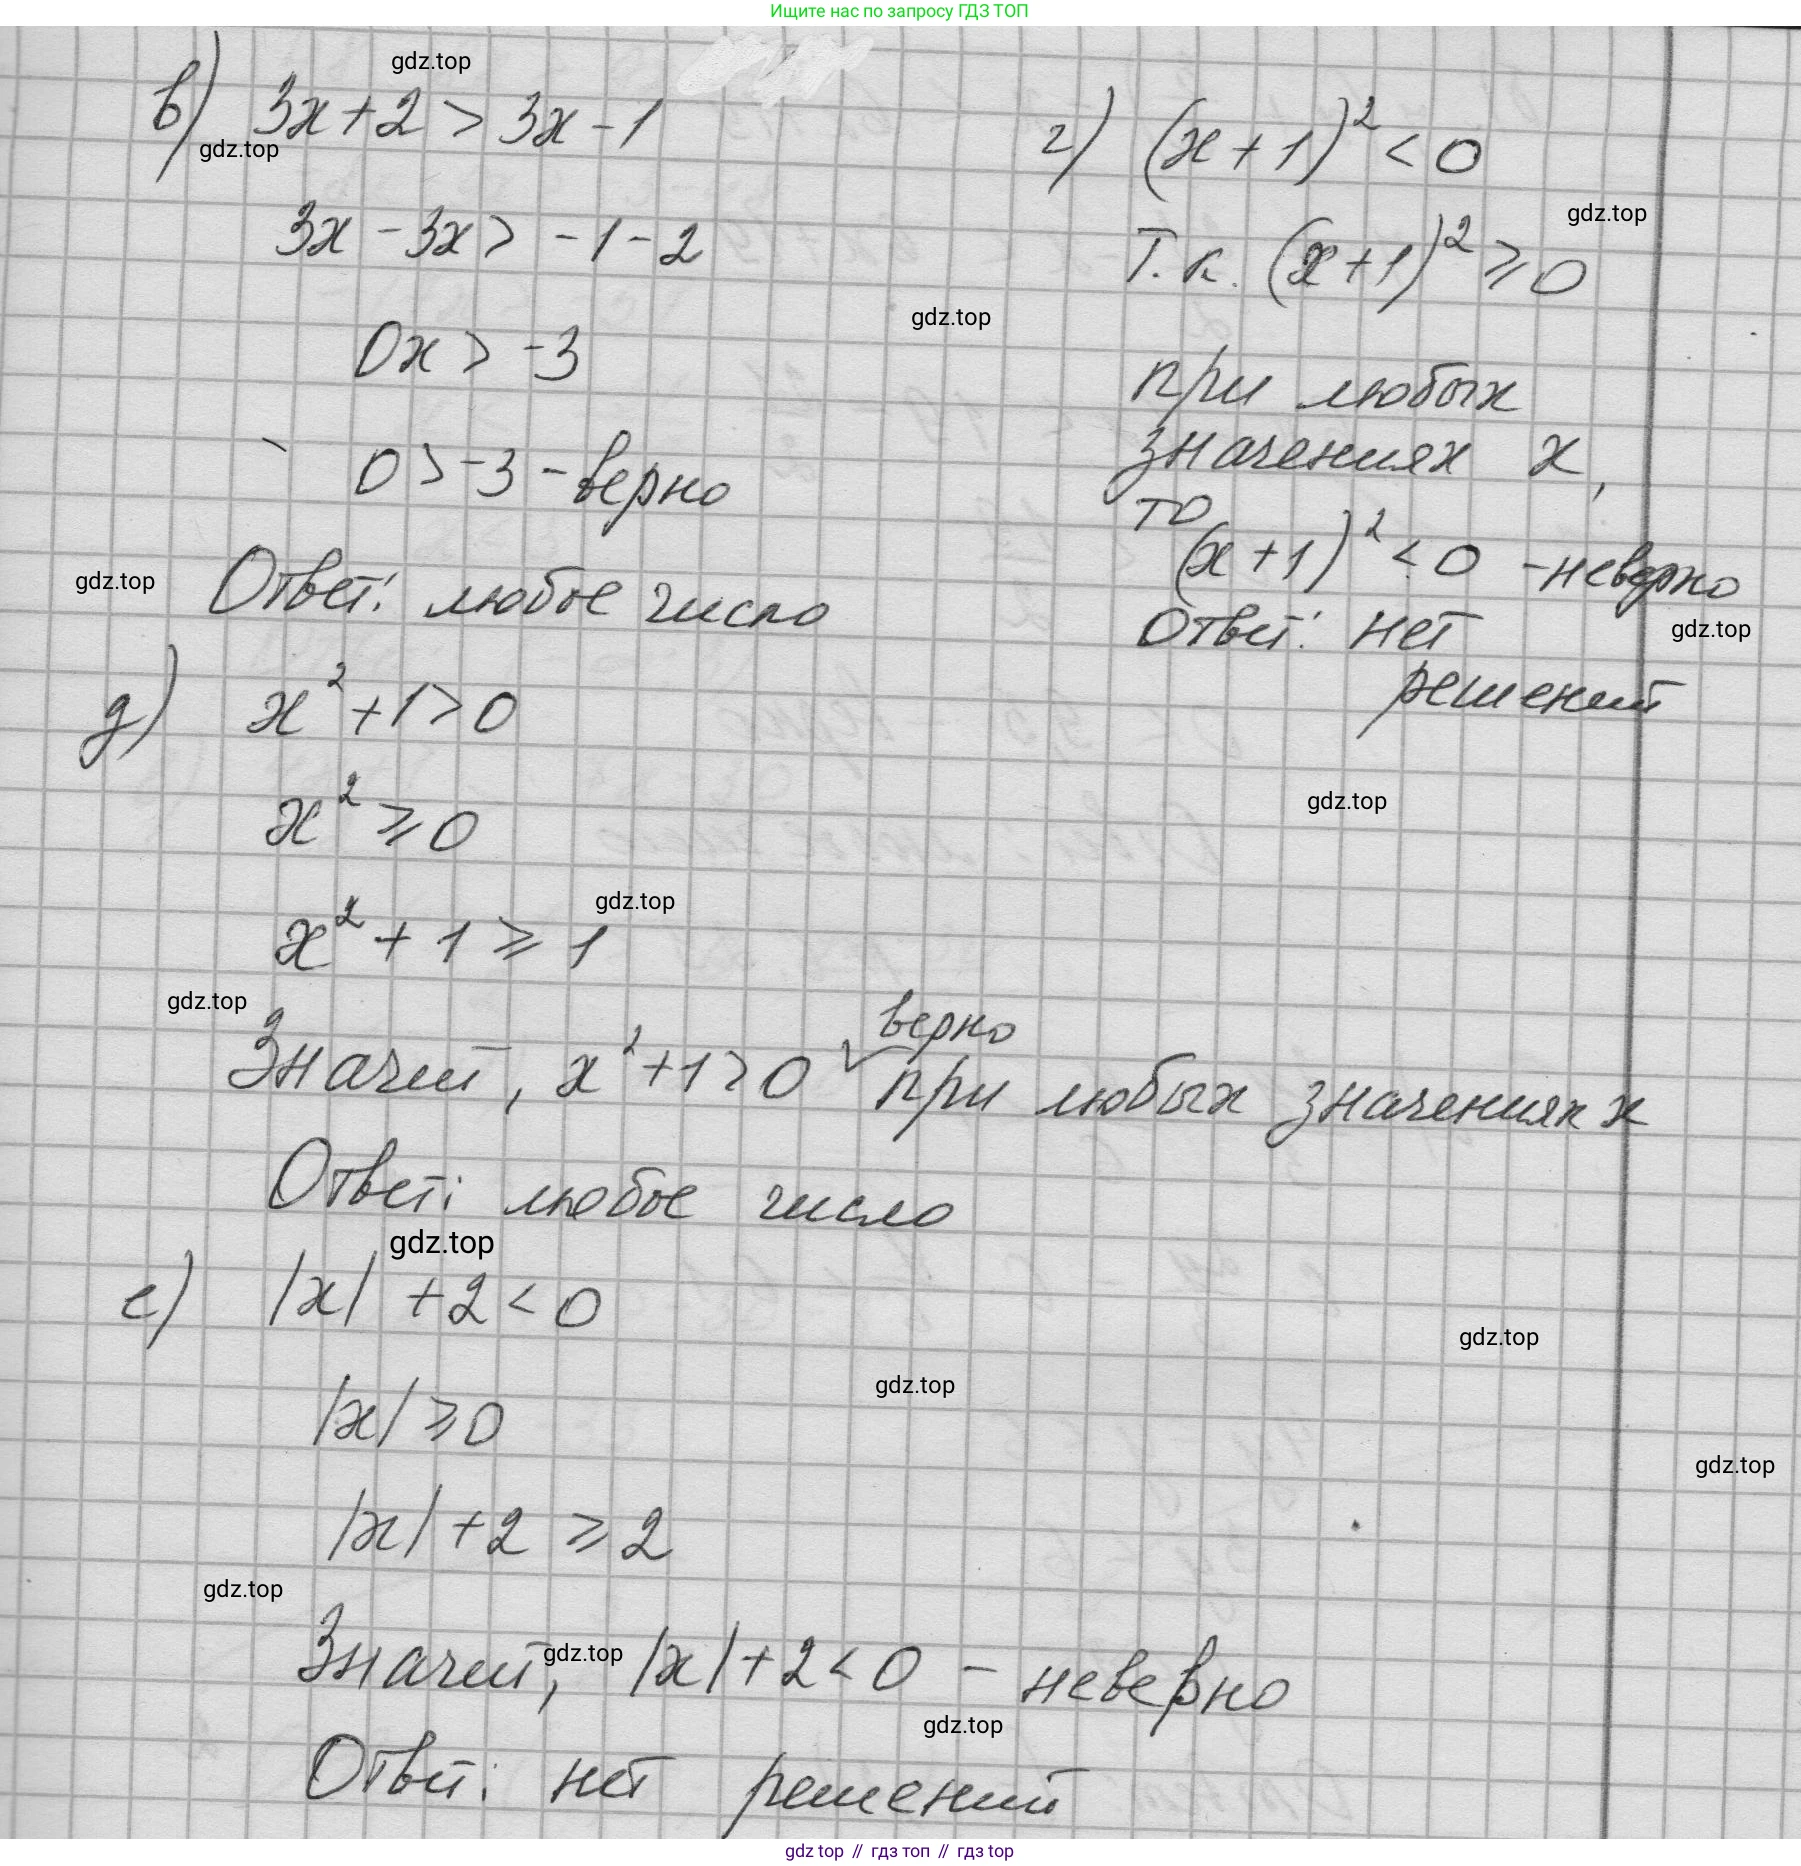 Ищите нас по запросу ГДЗ ТОП
gdz.top
в) 3x+2 > 3x-1
gdz.top
3x - 3x > -1-2
0x > -3
0 > -3 - верно
gdz.top
Ответ: любое число
г) (x+1)² < 0
gdz.top
Т.к. (x+1)² ≥ 0
gdz.top
при любых
значениях x,
то
(x+1)² < 0 - неверно
Ответ: нет
gdz.top
решений
д) x²+1>0
x² ≥ 0
gdz.top
gdz.top
x² + 1 ≥ 1
gdz.top
верно
Значит, x²+1>0 при любых значениях x
Ответ: любое число
gdz.top
е) |x| +2 < 0
gdz.top
gdz.top
|x| ≥ 0
gdz.top
|x| +2 ≥ 2
gdz.top
Значит, |x|+2<0 - неверно
gdz.top
gdz.top
Ответ: нет решений
gdz.top // гдз топ // гдз top